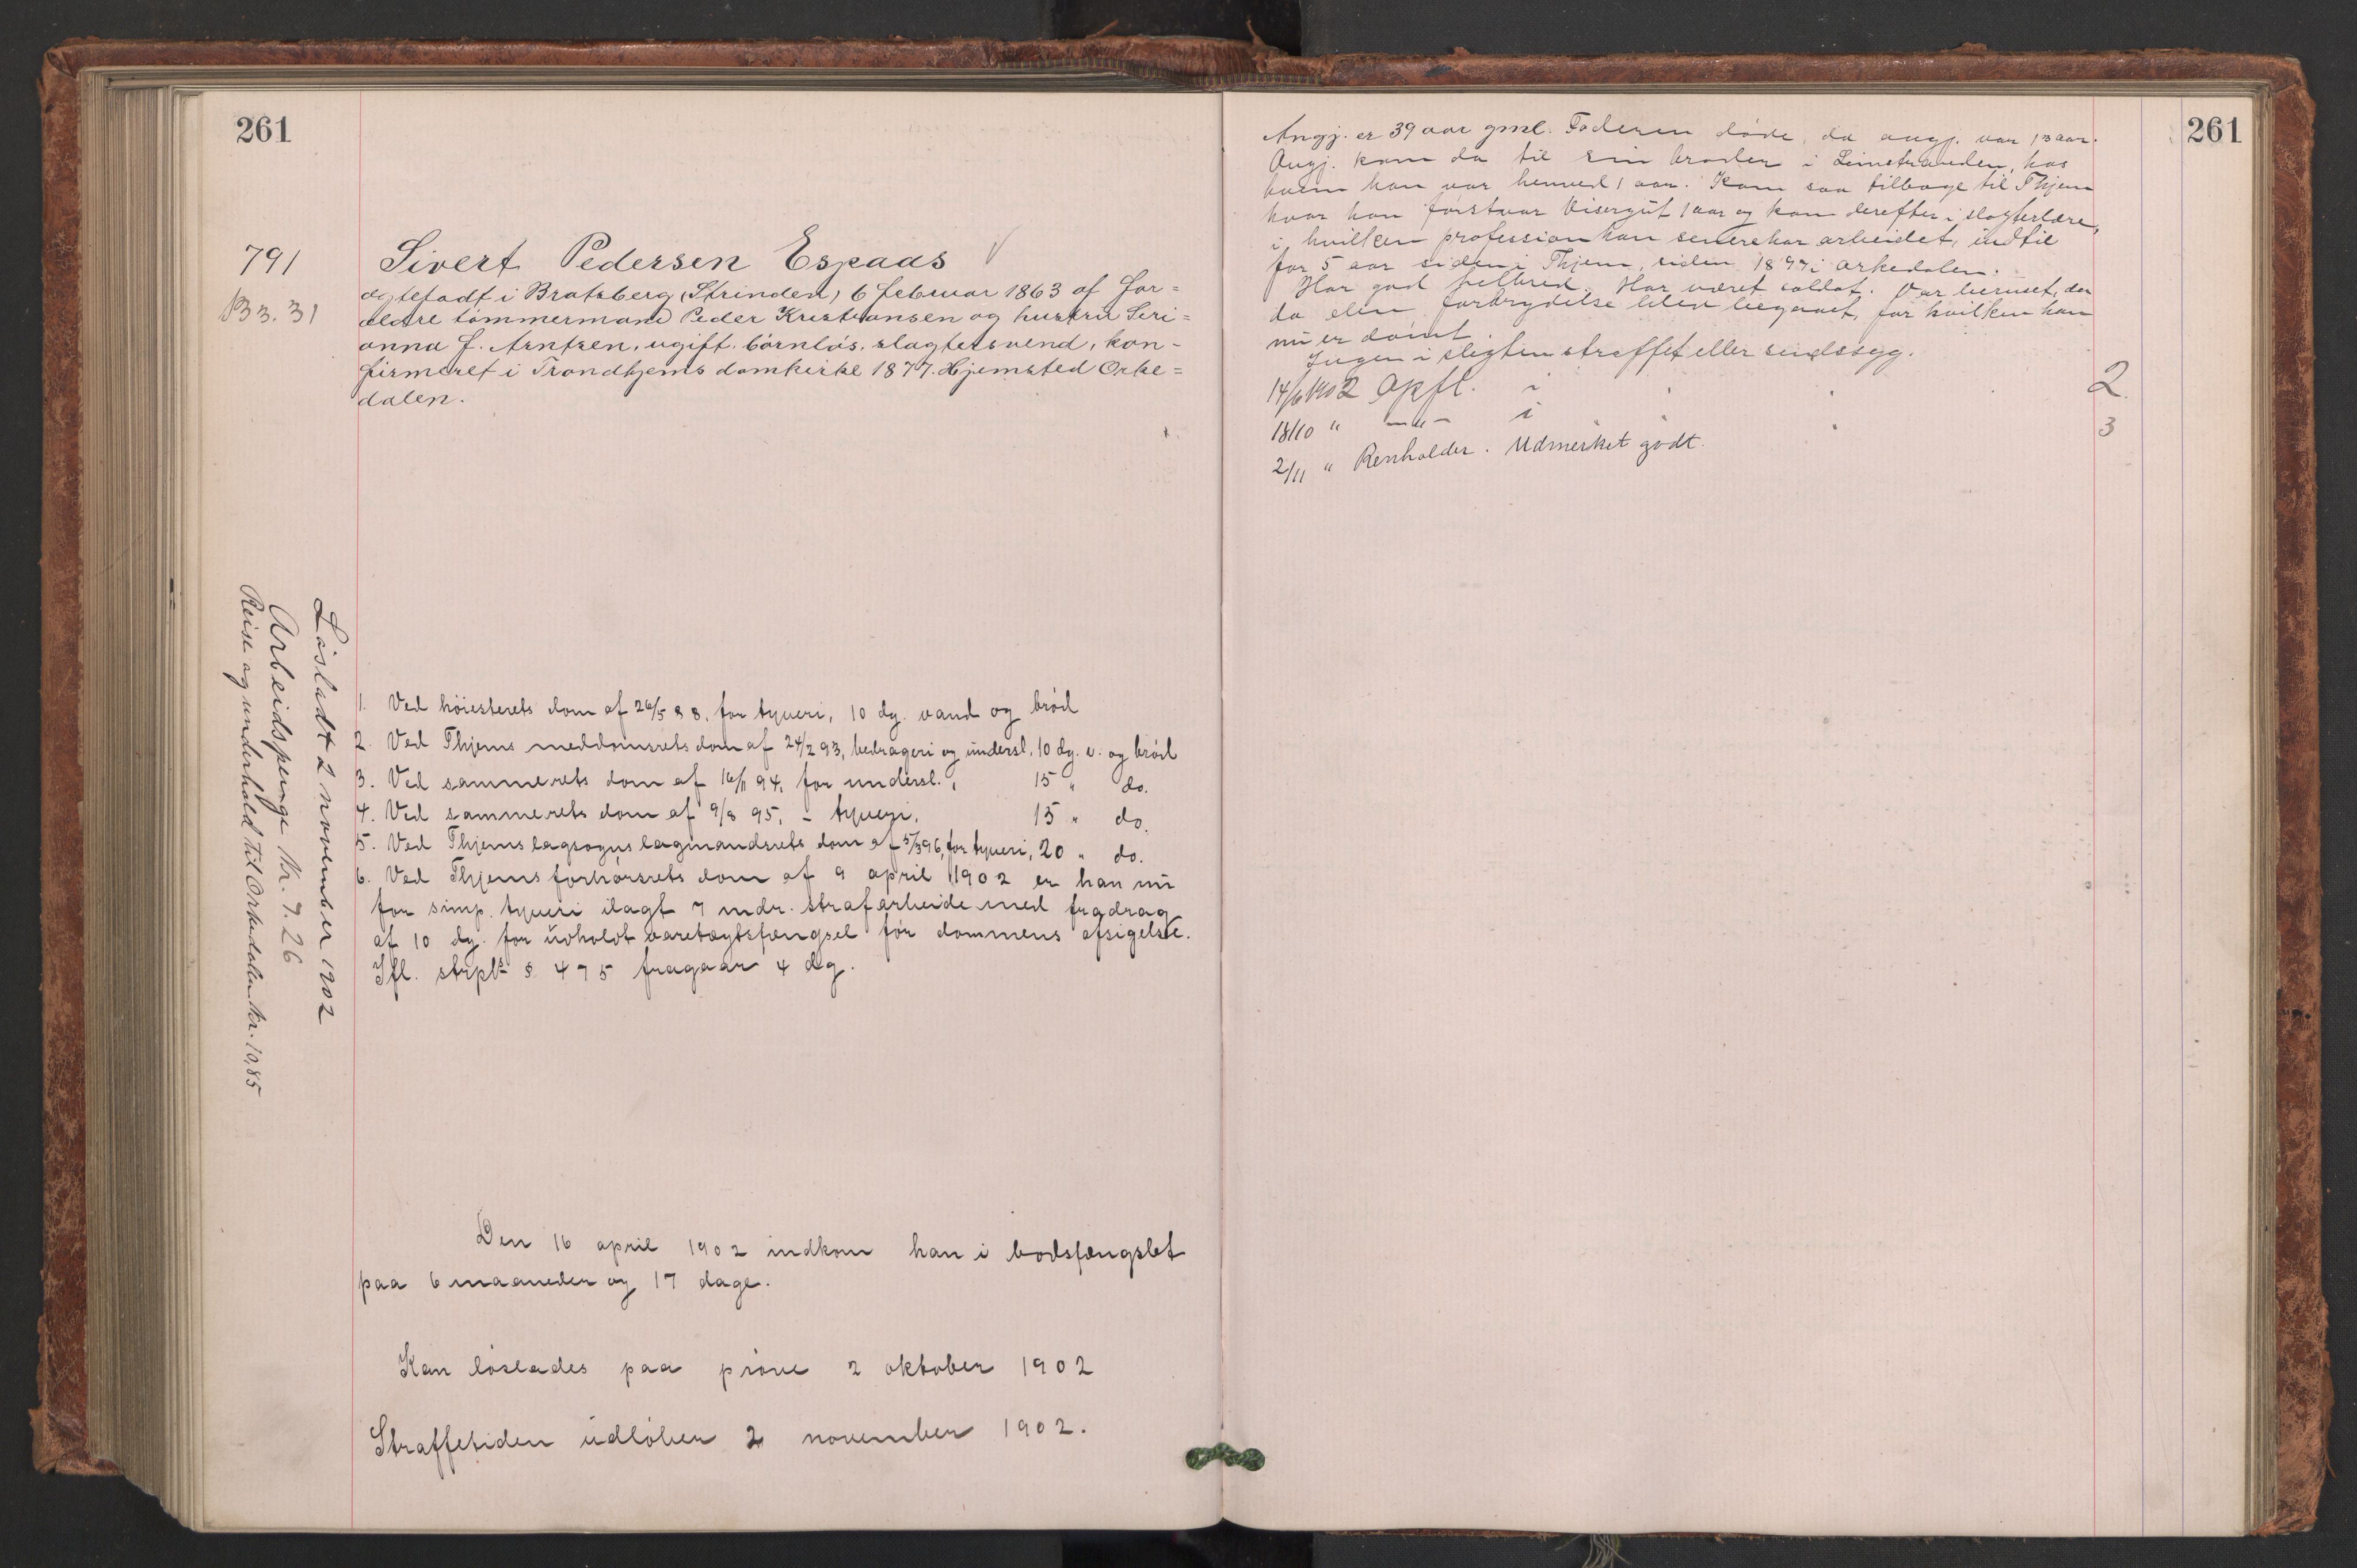 261
791
B 3. 31
Sivert Pedersen Espaas
ægtefødt i Bratsberg (Strinden) 6 februar 1863 af for=
ældre tømmermand Peder Kristiansen og hustru Seri=
anna f. Arntzen, ugift. børnløs, slagtersvend, kon-
firmeret i Trondhjems domkirke 1877. Hjemsted Orke=
dalen.
1. Ved høiesterets dom af 26/5 88, for tyveri, 10 dg. vand og brød
2. Ved Thjems meddomsrets dom af 24/2 93, bedrageri og undersl. 10 dg. v. og brød
3. Ved sammerets dom af 16/11 94, for undersl., 15 " do.
4. Ved sammerets dom af 9/8 95, - tyveri, 15 " do.
5. Ved Thjems lagsogns lagmandsrets dom af 5/3 96, for tyveri, 20 " do.
6. Ved Thjems forhørsrets dom af 9 april 1902 er han nu
for simp. tyveri ilagt 7 mdr. strafarbeide med fradrag
af 10 dg. for udholdt varetægtsfængsel før dommens afsigelse.
Ifl. strpl. § 475 fragaar 4 dg.
Den 16 april 1902 indkom han i bodsfængslet
paa 6 maaneder og 17 dage.
Kan løslades paa prøve 2 oktober 1902
Straffetiden udløber 2 november 1902.
Løsladt 2 november 1902
Arbeidspenge kr. 7.26
Reise og underhold til Orkedalen kr. 10,85
261
Angj. er 39 aar gml. Faderen døde, da angj. var 13 aar.
Angj. kom da til sin broder i Leinstranden, hos
hvem han var henved 1 aar. Kom saa tilbage til Thjem
hvor han først var Visergut 1 aar og kom derefter i slagterlære,
i hvilken profession han senere har arbeidet, indtil
for 5 aar siden i Thjem, siden 1897 i Orkedalen.
Har god helbred. Har været soldat. Var beruset, da
da den forbrydelse blev begaaet, for hvilken han
nu er dømt.
Ingen i slegten straffet eller sindssyg.
14/6 1902 Opfl. i 2
18/10 " -"- i 3
2/11 " Renholder. Udmerket godt.